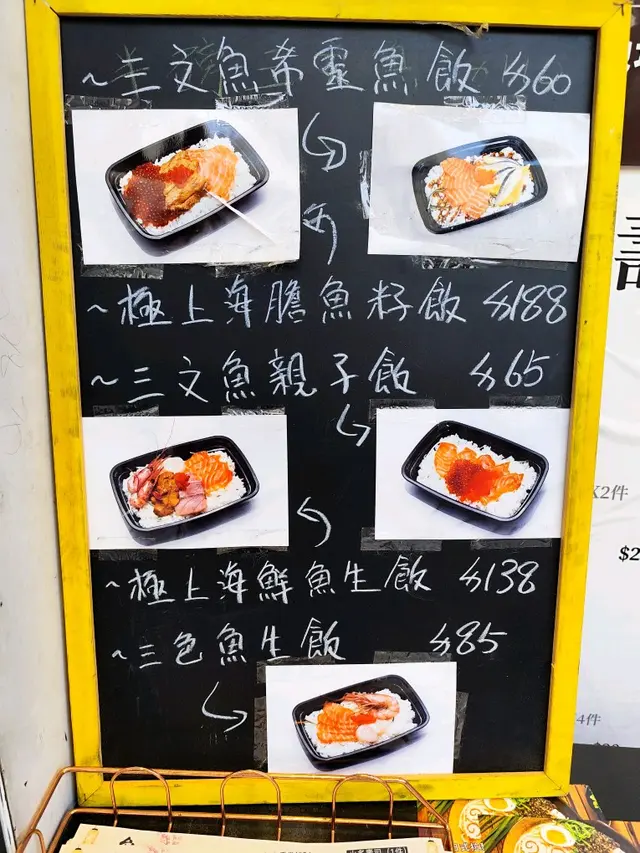 ~三文魚希靈魚飯 $60
~極上海膽魚籽飯 $188
~三文魚親子飯 $65
~極上海鮮魚生飯 $138
~三色魚生飯 $85
X2件
$2
4件